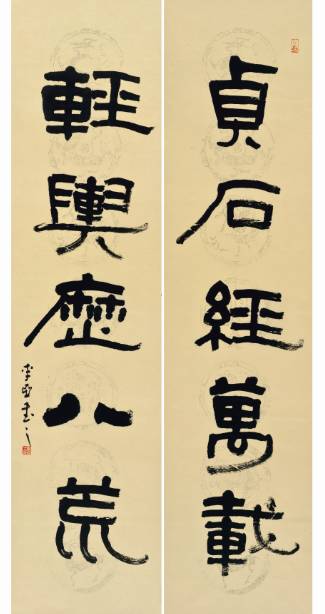 貞石經萬載
輕輿歷八荒